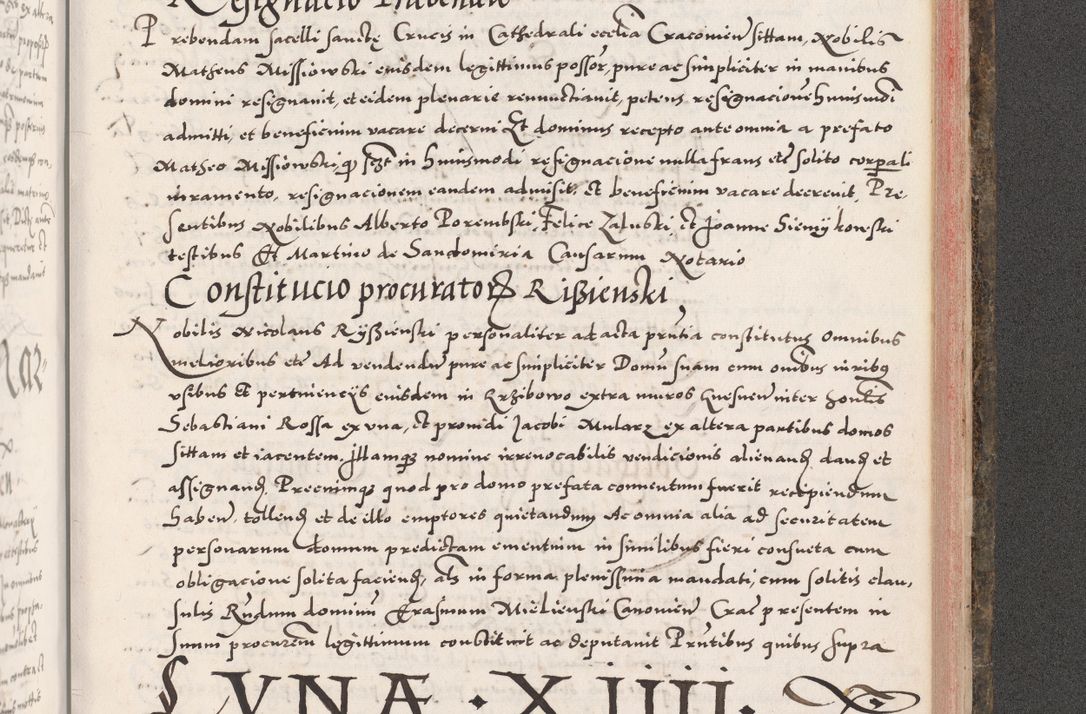 Resignacio Prebendae
Prebendam sacelli sanctę Crucis in Cathedrali ecclia Cracovien sittam, Nobilis
Matheus Missiowski eiusdem legittimus possor, pure ac simpliciter in manibus
domini resignavit, et eidem plenarie renunctiavit, petens resignacione huiusmodi
admitti, et beneficium vacare decerni Et dominus recepto ante omnia a prefato
Matheo Missiowski, q̃ sit in huiusmodi resignacione nulla fraus etc̃ solito corporali
iuramento, resignacionem eandem admisit, et beneficium vacare decrevit, Pre
sentibus Nobilibus Alberto Porembski, Felice Zaluski, et Joanne Siemijkowski
testibus Et Martino de Sandomiria Causarum Notario
Constitucio procurator̃ Rißienski
Nobilis Nicolaus Ryßienski personaliter ad acta prñtia constitutus Omnibus
melioribus etc̃ Ad vendendũ pure ac simpliciter Domũ suam cum omĩbus iuribꝯ
usibus et pertinencijs eiusdem in Krzibowo extra muros inter honlis
Sebastiani Rossa ex una, et providi Jacobi Mularz ex altera partibus domos
sittam et iacentem, Illamqꝫ nomine irrevocabilis vendicionis alienand̃ dand̃ et
assignand̃, Preciumqꝫ quod pro domo prefata conventum fuerit recipiendum
haben̄, tollend̃ et de illo emptores quietandum Ac omnia alia ad securitatem
personarum domum predictam ementium in similibus fieri consueta cum
obligacione solita faciend̃, als in forma plenissima mandati, cum solitis clau,
sulis Rñdum dominũ Erasmum Mielienski Canonicũ Crac̃ presentem in
suum procurem̃ legittimum constituit ac deputavit Prñtibus quibus supra
LUNÆ · XIIII ·